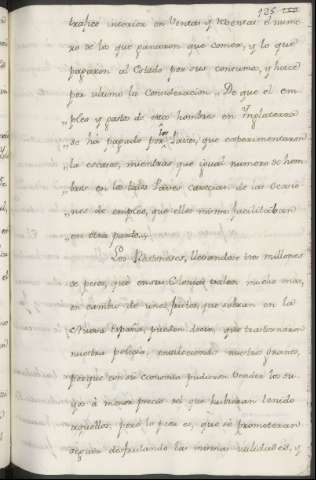 125
trafico interior en Ventas y Reventas el nume-
ro de los que pararon que comer, y lo que
pagaron al Estado por sus consumos, y hace
por ultimo la Consideracion. „De que el em-
„pleo y gasto de estos hombres en Inglaterra
„se há pagado por los Paises, que experimentaron
„la escases, mientras que igual numero de hom-
bres en los tales Paises carecian de las Ocasio-
„nes de empleo, que ellos mismos facilitaban
„en otra parte.„
Los Bostoneses, llevandose tres millones
de pesos, que en sus Colonias valen mucho mas,
en cambio de unos frutos, que sobran en la
Nueva España, pueden decir, que trastornaron
nuestra policia, enrriqueciendo nuestro Erario,
porque con su economia pudieron vender los su-
yos á menor precio del que hubieran tenido
aquellos: pero lo peor es, que se prometeran
seguir disfrutando las mismas utilidades, y